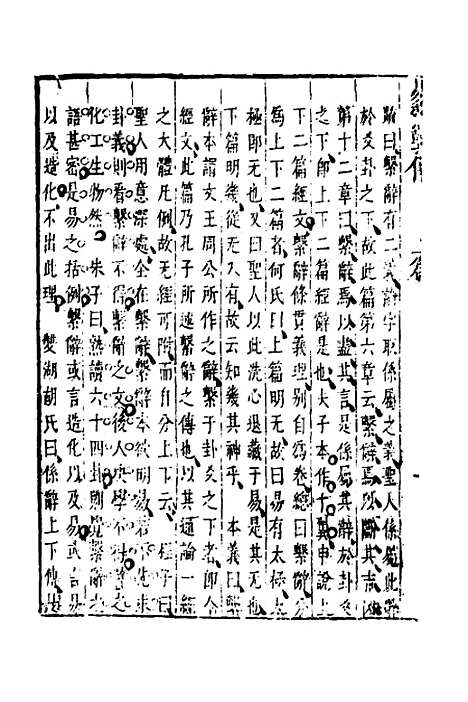 疏曰繫辭有二義辭字取係屬之義聖人係屬此辭
於爻卦之下故此篇第六章云繫辭焉以斷其吉凶
第十二章曰繫辭焉以盡其言是係屬其辭於卦爻
之下即上下二篇經辭是也夫子本作十翼申說上
下二篇經文繫辭條貫義理別自為卷總曰繫辭分
為上下二篇者何氏曰上篇明无故曰易有太極太
極即无也又曰聖人以此洗心退藏于密是其无也
下篇明幾從无入有故云知幾其神乎 本義曰繫
辭本謂文王周公所作之辭繫于卦爻之下者即今
經文此篇乃孔子所述繫辭之傳也以其通論一經
之大體凡例故无經可附而自分上下云 程子曰
聖人用意深處全在繫辭繫辭本欲明易若不先求
卦義則看繫辭不得繫辭之文後人決學不得
化工生物然 朱子曰熟讀六十四卦則覺繫辭之
語甚密是易之括例繫辭或言造化以及易或言易
以及造化不出此理 雙湖胡氏曰係辭上下傳